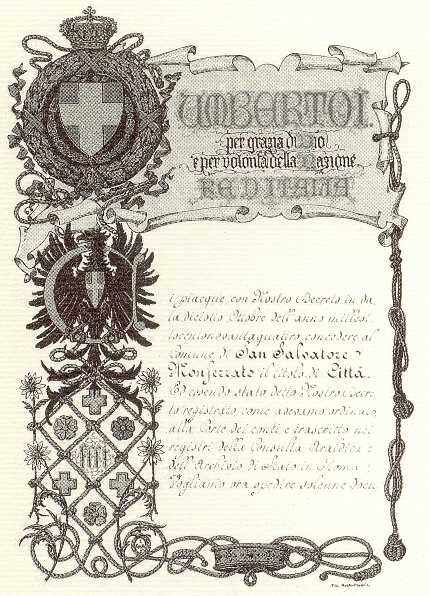 UMBERTO I.
per grazia di Dio
e per volontà della Nazione
RE D'ITALIA
Ci piacque con Nostro Decreto in da
ta diciotto Ottobre dell'anno milleot
tocentonovantaquattro concedere al
Comune di San Salvatore
Monferrato il titolo di Città.
Ed essendo stato detto Nostro Decre
to registrato come avevamo ordinato
alla Corte dei conti e trascritto nei
registri della Consulta Araldica e
dell'Archivio di Stato in Roma:
Vogliamo ora spedire solenne docu